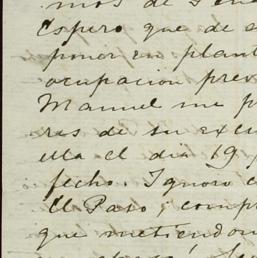 mos de
Espero que de
poner en plant
ocupacion prev
Manuel me p
res de su excu
ella el dia 19,
fecho. Ignoro
El Paso, y compr
que metiendon